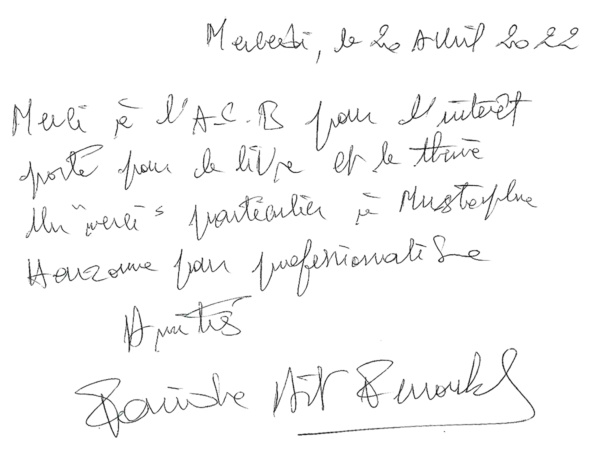 Mercredi, le 20 Avril 2022
Merci à l'A-C-B pour l'intérêt
porté pour le livre et le thème
Un "merci" particulier à Mustapha
Harzoune pour professionnalisme
Amitiés
Aït Ferroukh